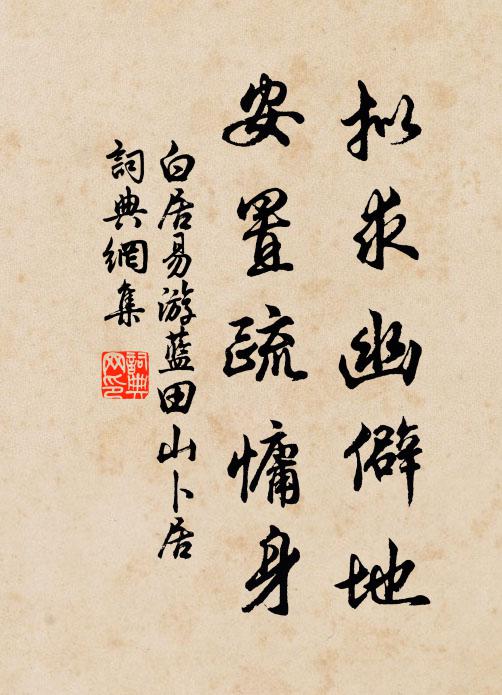 拟求幽僻地
安置疏慵身
白居易游藍田山卜居
詞典網集
詞典网印